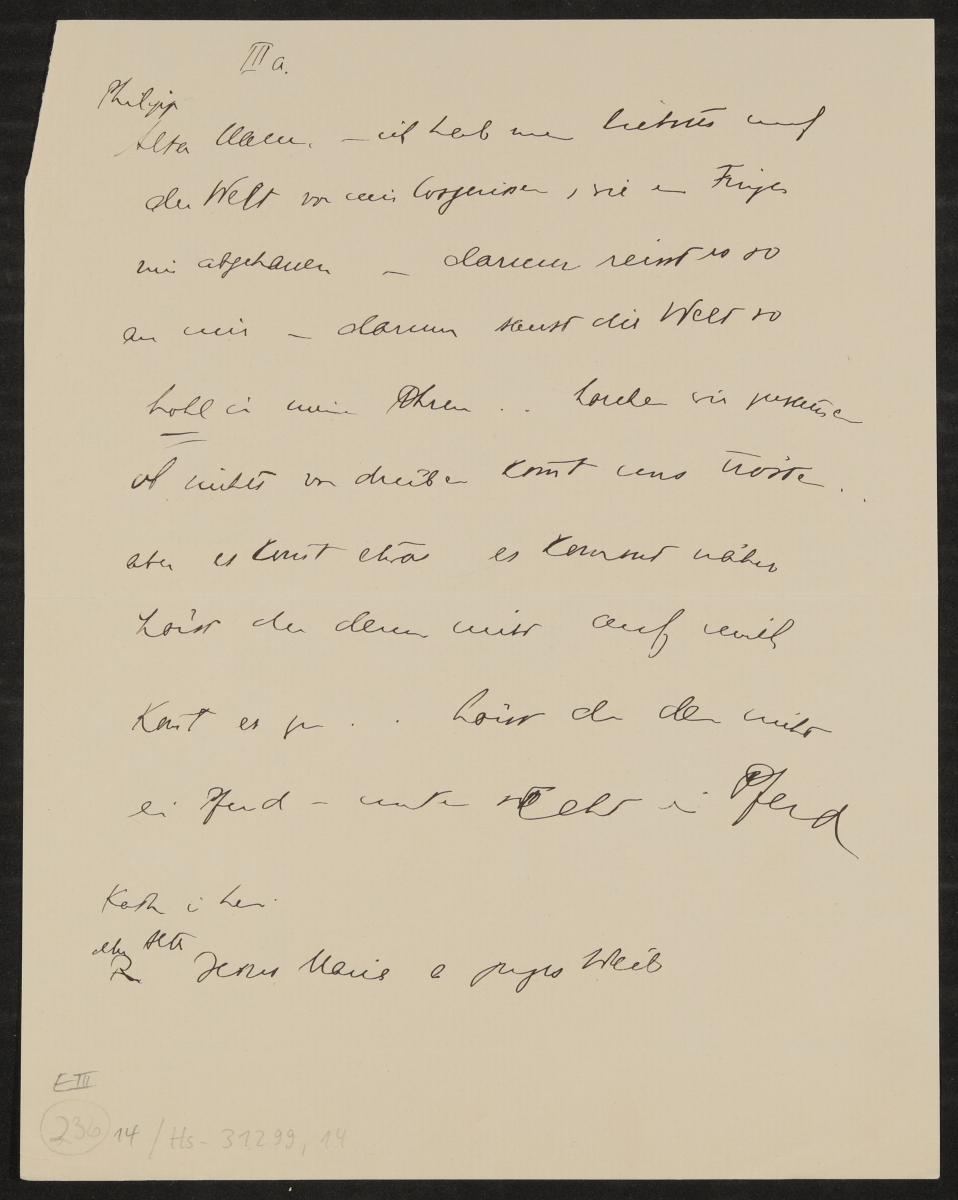 III a.
Philipp
Alter Mann. – ich hab mein liebstes auf
der Welt von mir losgerissen, wie ein Finger
mir abgehauen – darum reisst es so
an mir – darum saust die Welt so
hohl in meinen Ohren . . horchen wir zusammen
ob nichts von drüben komt uns trösten . .
aber es komt etwas es kommt näher
hörst du denn nicht auf mich
komt es zu . . hörst du denn nicht
ein Pferd – unten steht ein Pferd
Alte
Jesus Maria a junges Weib
E III
236 14 / Hs-31299,14